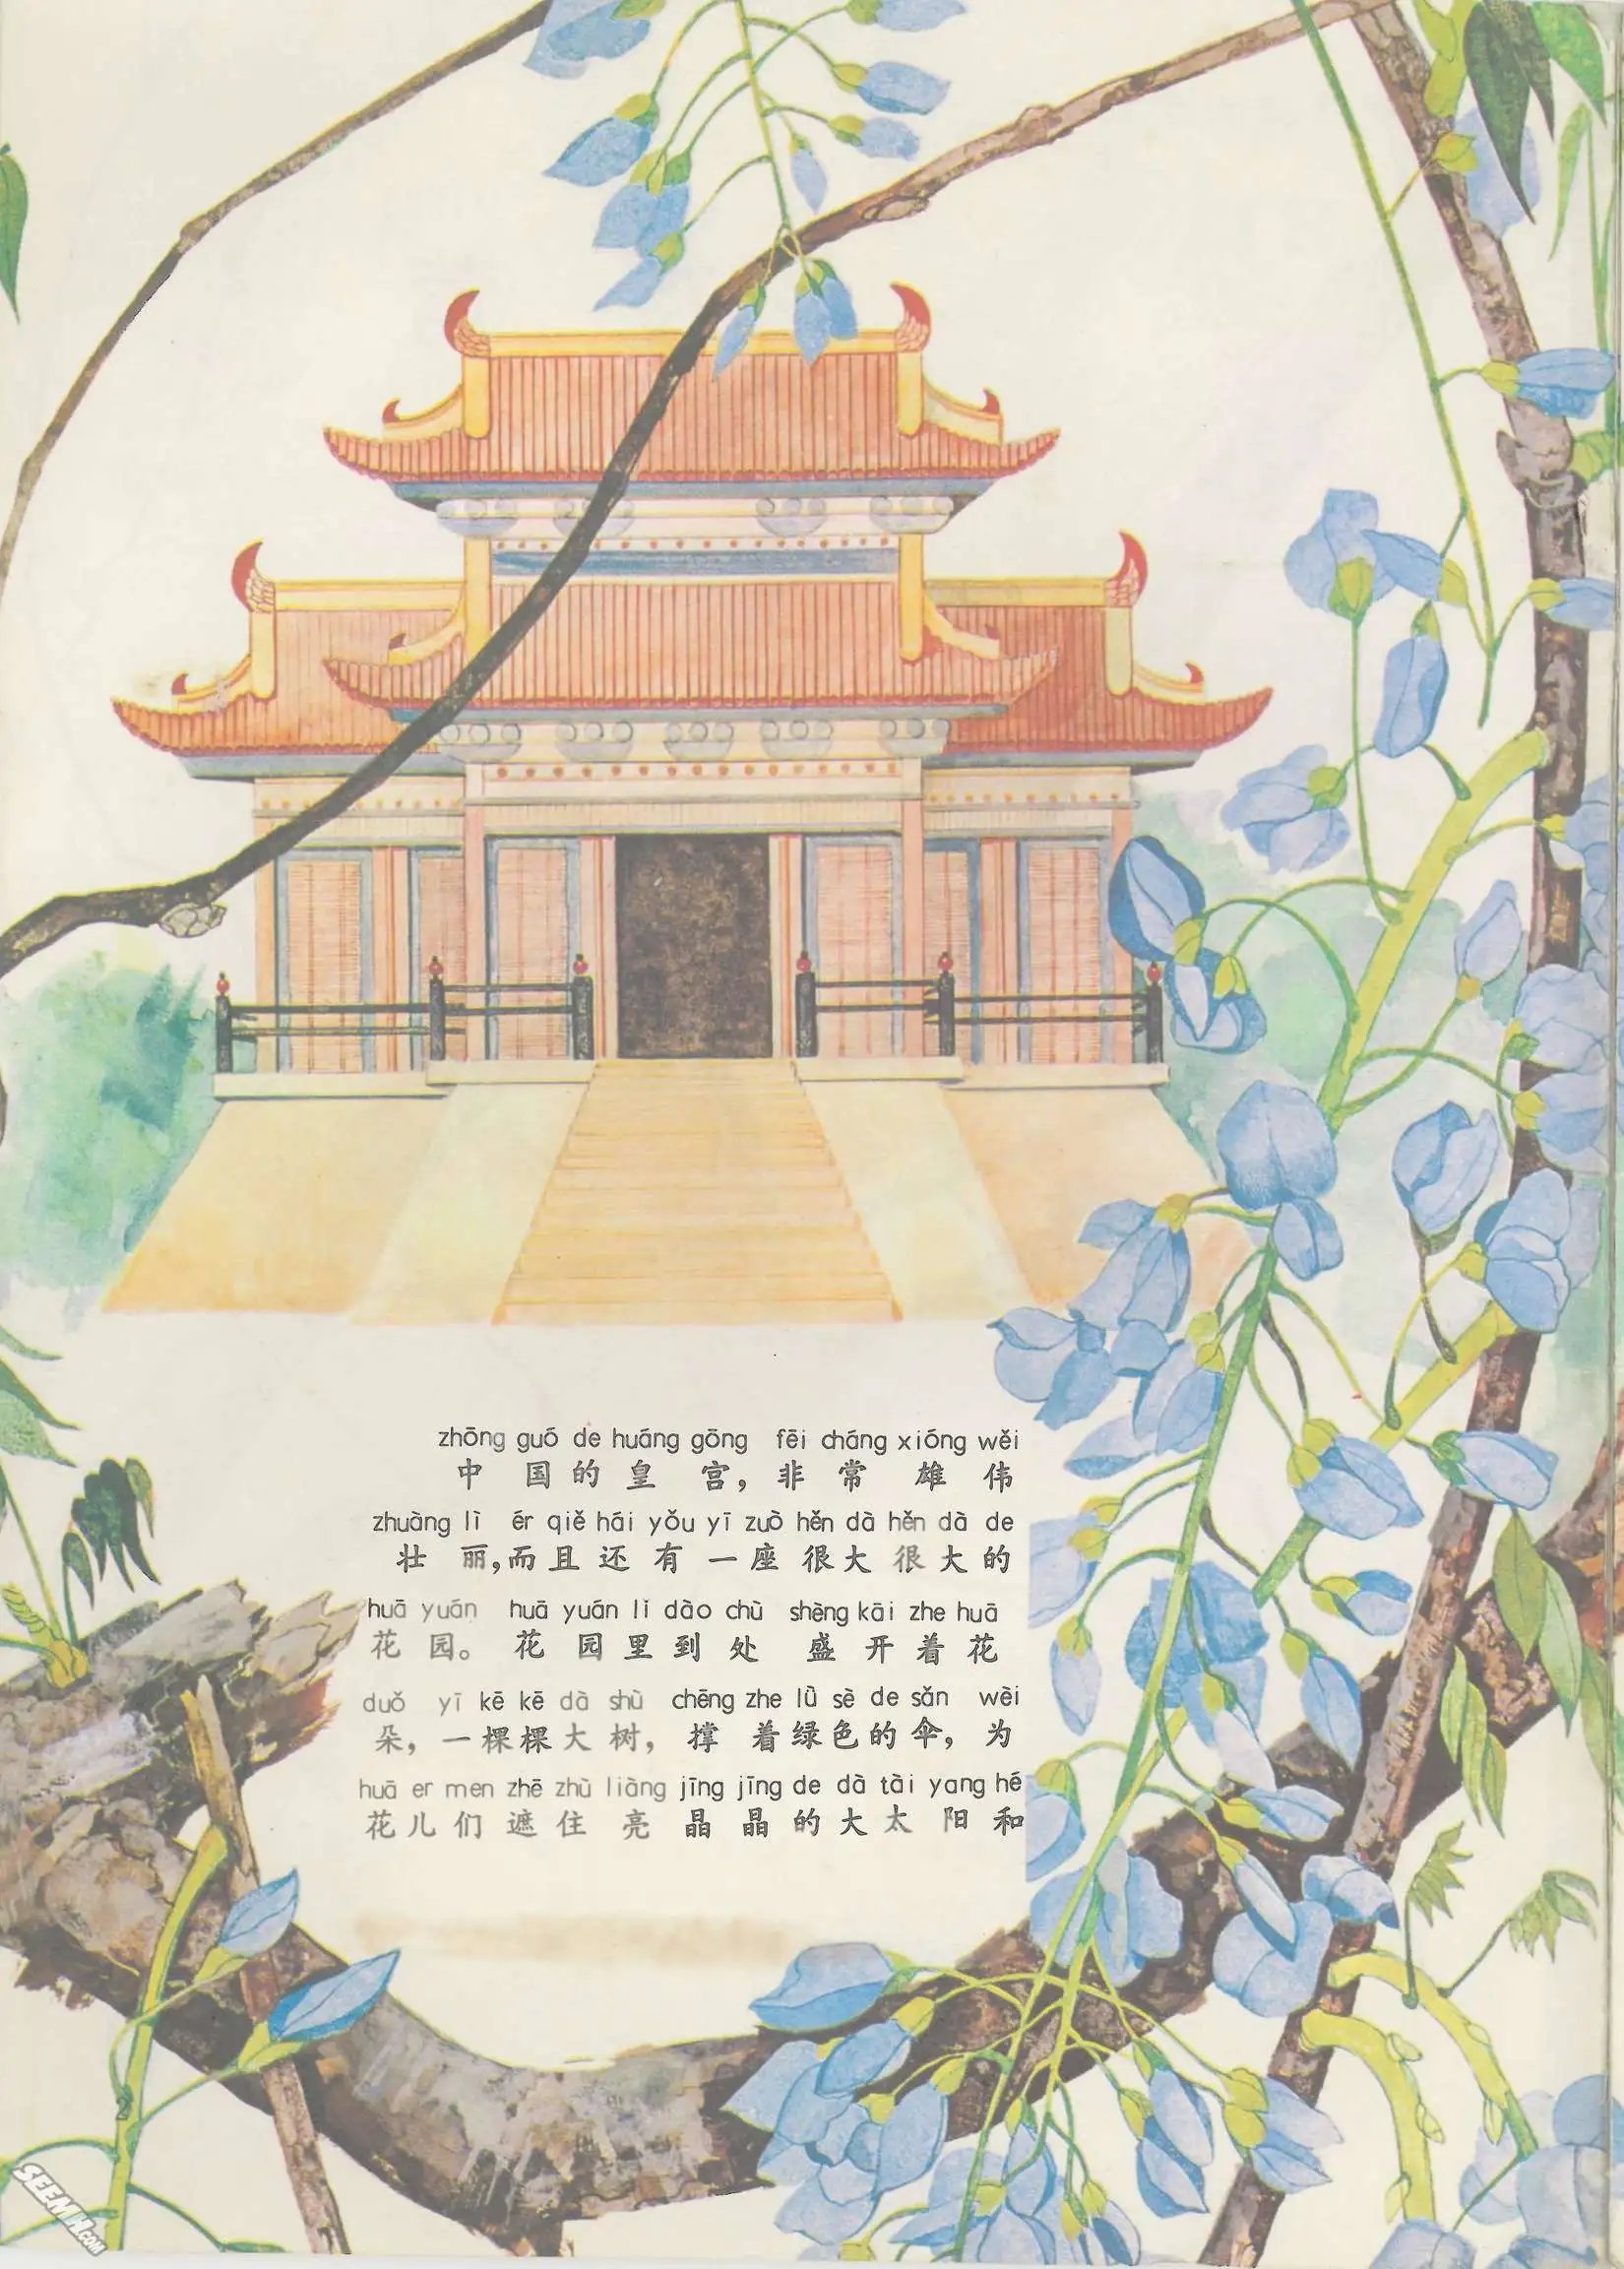 zhōng guó de huáng gōng fēi cháng xióng wěi
中国的皇宫，非常雄伟
zhuàng lì ér qiě hái yǒu yī zuò hěn dà hěn dà de
壮丽，而且还有一座很大很大的
huā yuán huā yuán lǐ dào chù shèng kāi zhe huā
花园。花园里到处盛开着花
duǒ yī kē kē dà shù chēng zhe lǜ sè de sǎn wèi
朵，一棵棵大树，撑着绿色的伞，为
huā er men zhē zhù liàng jīng jīng de dà tài yang hé
花儿们遮住亮晶晶的大太阳和
SEEMH.COM